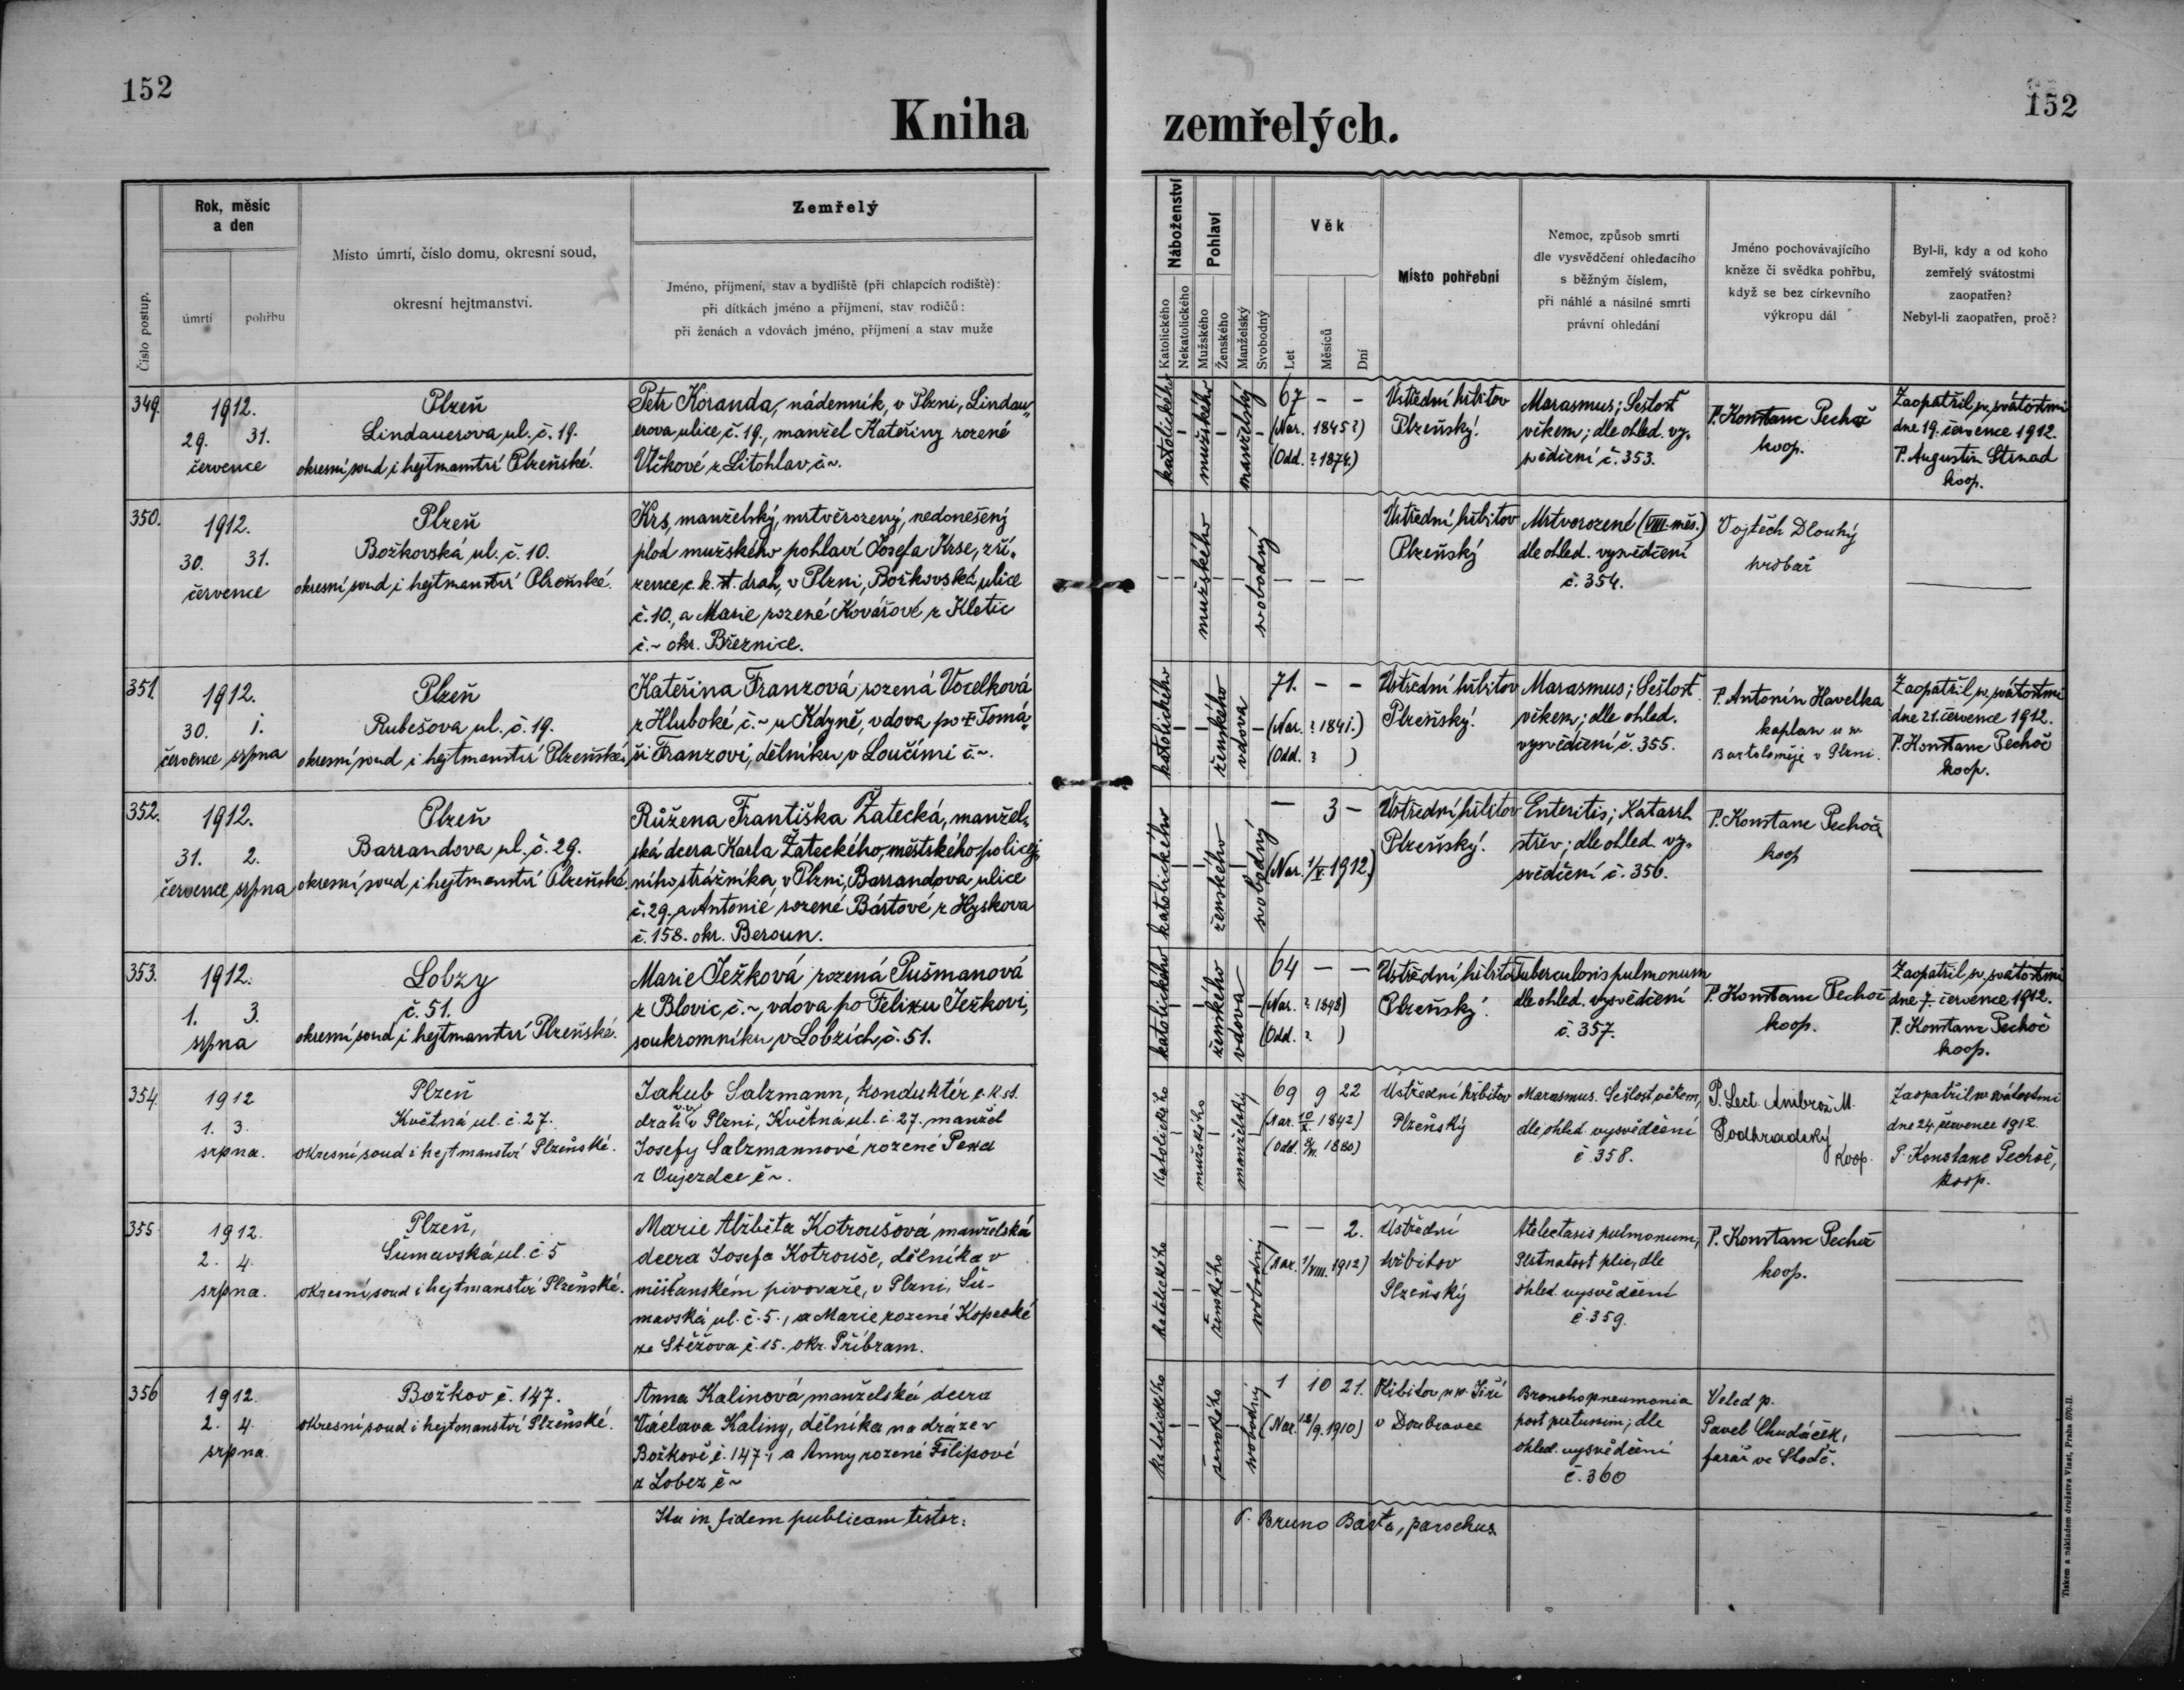 152
Kniha
zemřelých.
152
Číslo postup.
Rok, měsíc
a den
úmrtí
pohřbu
Místo úmrtí, číslo domu, okresní soud,
okresní hejtmanství.
Zemřelý
Jméno, příjmení, stav a bydliště (při chlapcích rodiště):
při dítkách jméno a příjmení, stav rodičů:
při ženách a vdovách jméno, příjmení a stav muže
Náboženství
Katolického
Nekatolického
Pohlaví
Mužského
Ženského
Manželský
Svobodný
Věk
Let
Měsíců
Dní
Místo pohřební
Nemoc, způsob smrti
dle vysvědčení ohledacího
s běžným číslem,
při náhlé a násilné smrti
právní ohledání
Jméno pochovávajícího
kněze či svědka pohřbu,
když se bez církevního
výkropu dál
Byl-li, kdy a od koho
zemřelý svátostmi
zaopatřen?
Nebyl-li zaopatřen, proč?
349.
1912.
29. 31.
července
Plzeň
Lindauerova ul. č. 19.
okresní soud i hejtmanství Plzeňské.
Petr Koranda, nádenník, v Plzni, Lindau„
erova ulice č. 19., manžel Kateřiny rozené
Vlčkové z Litohlav č. ~.
katolického
–
mužského
–
manželský
–
67 – –
(Nar. 1845?)
(Odd. ? 1874.)
Ústřední hřbitov
Plzeňský.
Marasmus; Sešlost
věkem; dle ohled. vy„
svědčení č. 353.
P. Konstanc Pechoč
koop.
Zaopatřil sv. svátostmi
dne 19. července 1912.
P. Augustin Strnad
koop.
350.
1912.
30. 31.
července
Plzeň
Božkovská ul. č. 10.
okresní soud i hejtmanství Plzeňské.
Krs, manželský, mrtvěrozený, nedonešený
plod mužského pohlaví Josefa Krse, zří„
zence c. k. st. drah, v Plzni, Božkovská ulice
č. 10., a Marie rozené Kovářové z Kletic
č. ~ okr. Březnice.
mužského
svobodný
– – –
Ústřední hřbitov
Plzeňský
Mrtvorozené (VIII. měs.)
dle ohled. vysvědčení
č. 354.
Vojtěch Dlouhý
hrobař
351.
1912.
30. 1.
července srpna
Plzeň
Rubešova ul. č. 19.
okresní soud i hejtmanství Plzeňské.
Kateřina Franzová rozená Vocelková
z Hluboké č. ~ u Kdyně, vdova po † Tomá„
ši Franzovi, dělníku, v Loučimi č. ~.
katolického
–
ženského
vdova
–
71. – –
(Nar. ? 1841.)
(Odd. ? )
Ústřední hřbitov
Plzeňský.
Marasmus; Sešlost
věkem; dle ohled.
vysvědčení č. 355.
P. Antonín Havelka
kaplan u sv.
Bartoloměje v Plzni.
Zaopatřil sv. svátostmi
dne 21. července 1912.
P. Konstanc Pechoč
koop.
352.
1912.
31. 2.
července srpna
Plzeň
Barrandova ul. č. 29.
okresní soud i hejtmanství Plzeňské.
Růžena Františka Žatecká, manžel„
ská dcera Karla Žateckého, městského policej„
ního strážníka, v Plzni, Barrandova ulice
č. 29. a Antonie rozené Bártové z Hyskova
č. 158. okr. Beroun.
katolického
–
ženského
–
svobodný
– 3 –
(Nar. 1/V. 1912.)
Ústřední hřbitov
Plzeňský.
Enteritis; Katarrh
střev; dle ohled. vy„
svědčení č. 356.
P. Konstanc Pechoč
koop
353.
1912.
1. 3.
srpna
Lobzy
č. 51.
okresní soud i hejtmanství Plzeňské.
Marie Ježková rozená Pušmanová
z Blovic č. ~, vdova po Felixu Ježkovi,
soukromníku, v Lobzích, č. 51.
katolického
–
ženského
vdova
–
64 – –
(Nar. ? 1848)
(Odd. ? )
Ústřední hřbitov
Plzeňský.
Tuberculosis pulmonum
dle ohled. vysvědčení
č. 357.
P. Konstanc Pechoč
koop.
Zaopatřil sv. svátostmi
dne 7. července 1912.
P. Konstanc Pechoč
koop.
354.
1912
1. 3.
srpna.
Plzeň
Květná ul. č 27.
okresní soud i hejtmanství Plzeňské.
Jakub Salzmann, konduktér c. k. st.
drah v Plzni, Květná ul. č. 27. manžel
Josefy Salzmannové rozené Pexa
z Oujezdce č ~.
katolického
–
mužského
–
manželský
–
69 9 22
(Nar. 10/X. 1842)
(Odd. 1880)
Ústřední hřbitov
Plzeňský
Marasmus. Sešlost věkem,
dle ohled. vysvědčení
č. 358.
P. Lect. Ambrož M.
Podhradský
koop.
Zaopatřil sv. svátostmi
dne 24. července 1912.
P. Konstanc Pechoč,
koop.
355
1912.
2. 4.
srpna.
Plzeň,
Šumavská ul. č 5
okresní soud i hejtmanství Plzeňské.
Marie Alžběta Kotroušová manželská
dcera Josefa Kotrouše, dělníka v
měšťanském pivovaře, v Plzni, Šu-
mavská ul. č. 5., a Marie rozené Kopecké
ze Stěžova č. 15. okr. Příbram.
katolického
–
ženského
–
svobodný
– – 2.
(Nar. 1/VIII. 1912)
Ústřední
hřbitov
Plzeňský
Atelectasis pulmonum,
dle
ohled. vysvědčení
č. 359.
P. Konstanc Pechoč
koop.
356
1912.
2. 4.
srpna.
Božkov č. 147.
okresní soud i hejtmanství Plzeňské.
Anna Kalinová manželská dcera
Václava Kaliny, dělníka na dráze v
Božkově č. 147., a Anny rozené Filipové
z Lobez č ~
katolického
–
ženského
–
svobodný
1 10 21.
(Nar. 12/9. 1910)
Hřbitov u sv. Jiří
v Doubravce
Bronchopneumonia
post pertussim; dle
ohled. vysvědčení
č. 360
Veled p.
Pavel Chudáček,
farář ve
Ita in fidem publicam testor:
P. Bruno Barta, parochus.
Tiskem a nákladem družstva Vlast, Praha 570-II.